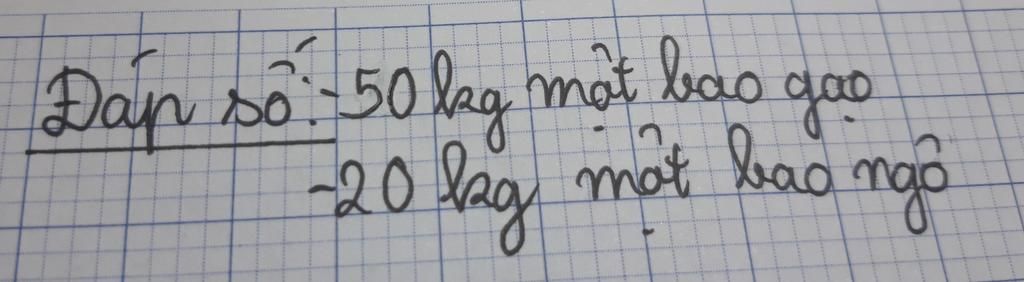 Đáp số: - 50 kg một bao gạo
- 20 kg một bao ngô